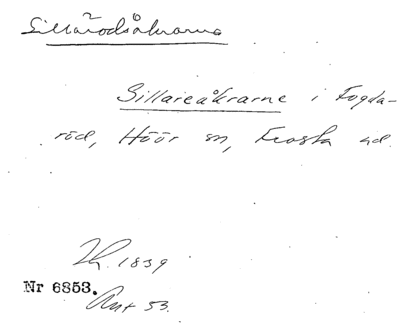 Sillarödsåkrarna
Sillareåkrarne i Fogda-
röd, Höör sn, Frosta hd.
1839
Nr 6853.
Ant 53.